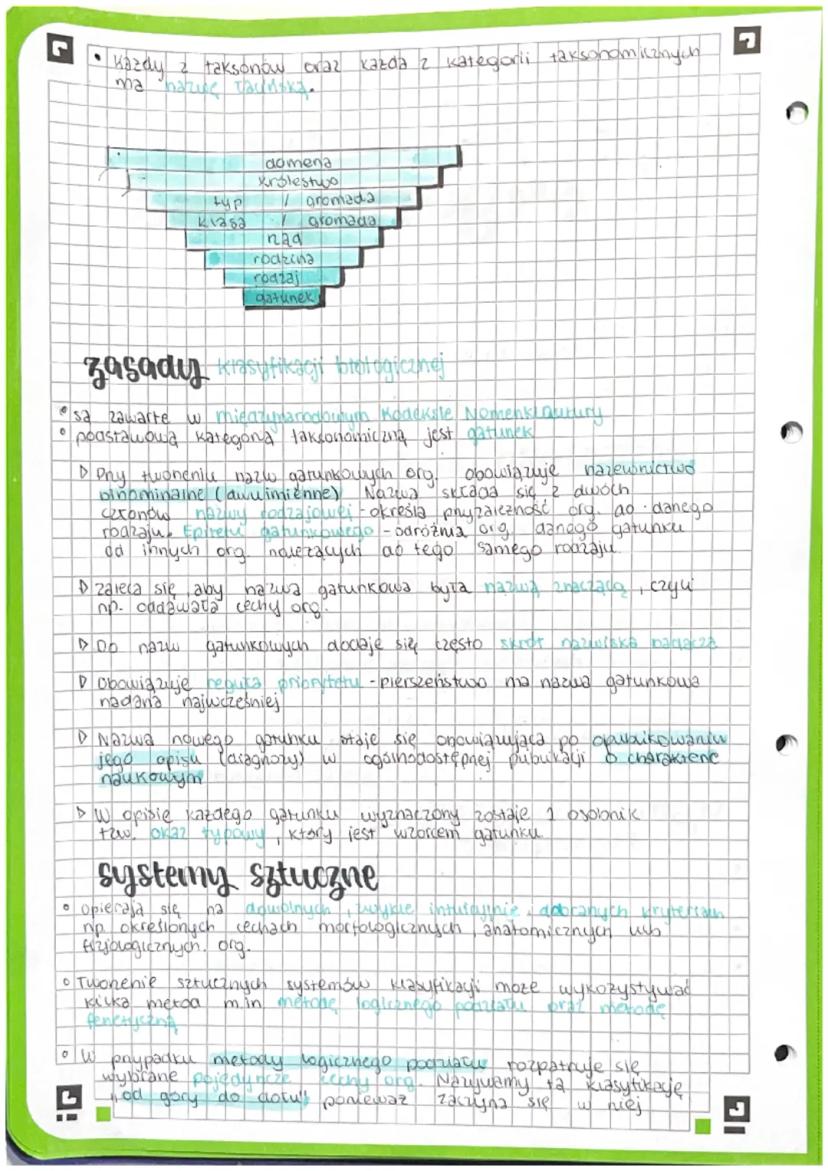 • Każdy z taksonów oraz każda z kategorii taksonomicznych
ma nazwę łacińską.
domena
królestwo
typ / gromada
klasa / gromada
rząd
rodzina
rodzaj
gatunek
zasady klasyfikacji biologicznej
• są zawarte w międzynarodowym Kodeksie Nomenklautury
• podstawową kategorią taksonomiczną jest gatunek
▷ Przy tworzeniu nazw gatunkowych org. obowiązuje nazewnictwo
binominalne (dwuimienne) Nazwa składa się z dwóch
członów nazwy rodzajowej - określa przynależność org. do danego
rodzaju. Epitetu gatunkowego - odróżnia org. danego gatunku
od innych org. należących do tego samego rodzaju
▷ zaleca się, aby nazwa gatunkowa była nazwą znaczącą, czyli
np. oddawała cechy org.
▷ Do nazw gatunkowych dodaje się często skrót nazwiska badacza
▷ Obowiązuje reguła priorytetu - pierszeństwo ma nazwa gatunkowa
nadana najwcześniej
▷ Nazwa nowego gatunku staje się obowiązująca po opublikowaniu
jego opisu (diagnozy) w ogólnodostępnej publikacji o charakterze
naukowym
▷ W opisie każdego gatunku wyznaczony zostaje 1 osobnik
tzw. okaz typowy, który jest wzorcem gatunku
systemy sztuczne
• opierają się na dowolnych, zwykle intuicyjnie, dobranych kryteriach
np określonych cechach morfologicznych, anatomicznych lub
fizjologicznych. org.
• Tworzenie sztucznych systemów klasyfikacji może wykozystywać
kilka metod m.in metodę logicznego podziału oraz metodę
fenetyczną
• W przypadku metody logicznego podziału rozpatruje się
wybrane pojedyncze cechy org. Nazywamy tą klasyfikację
"od góry do dołu" ponieważ zaczyna się w niej